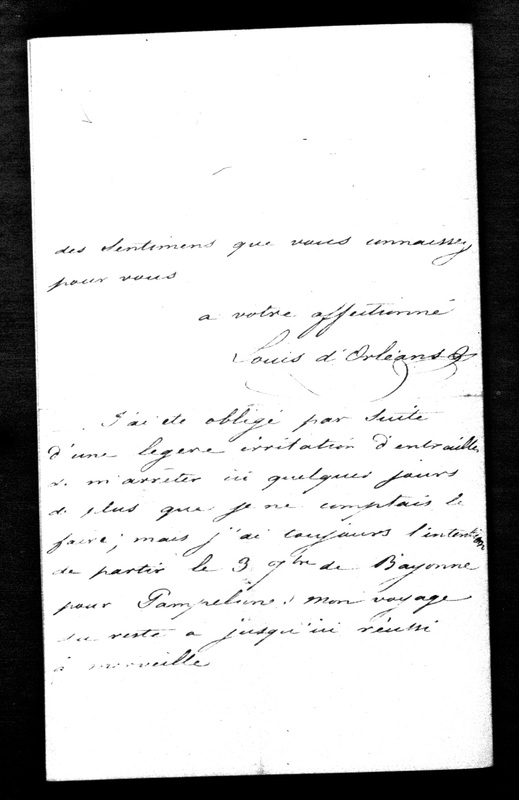 des Sentimens que vous connaissez
pour vous
a votre affectionné
Louis d'Orléans
J'ai été obligé par Suite
d'une legere irritation d'entrailles
de m'arrêter ici quelques jours
de plus que je ne comptais le
faire; mais j'ai toujours l'intention
de partir le 3 9bre de Bayonne
pour Pampelune; mon voyage
du reste a jusqu'ici réussi
à merveille